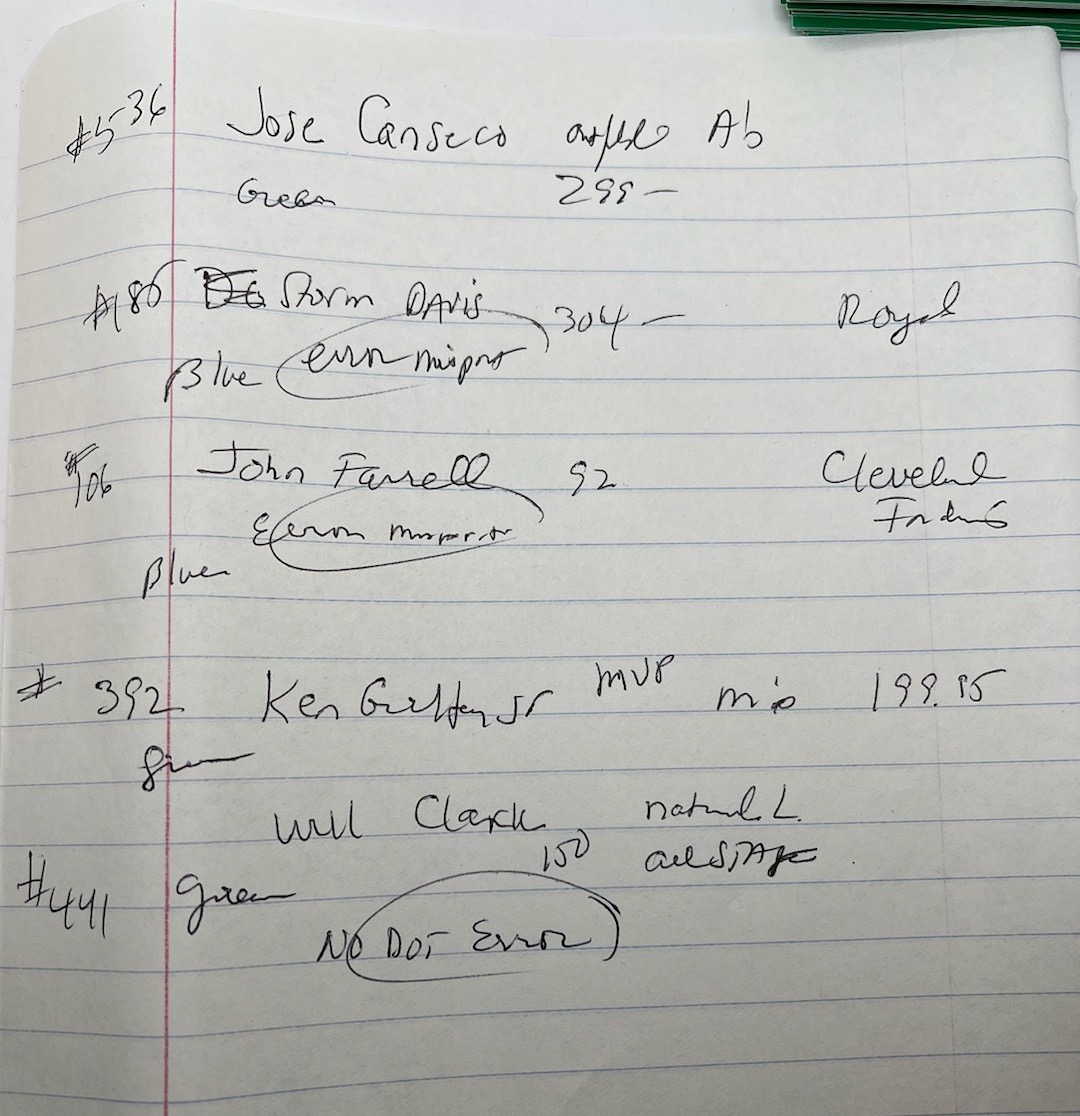 #536 Jose Canseco A's
Green 299-
#186 Storm DAVIS 304- Royal
Blue error misprint
#106 John Farrell 92 Cleveland
Error Misprint Indians
Blue
# 392 Ken Griffey Jr MVP 199.95
green
Will Clark National L.
150 all STAR
#441 green
NO DOT Error